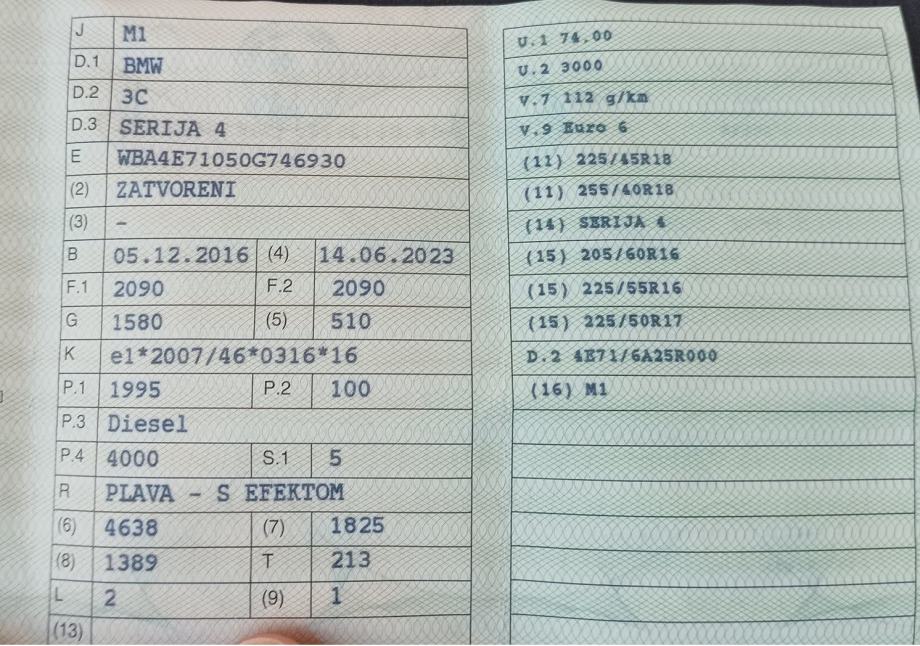 J M1
D.1 BMW
D.2 3C
D.3 SERIJA 4
E WBA4E71050G746930
(2) ZATVORENI
(3) –
B 05.12.2016 (4) 14.06.2023
F.1 2090 F.2 2090
G 1580 (5) 510
K e1*2007/46*0316*16
P.1 1995 P.2 100
P.3 Diesel
P.4 4000 S.1 5
R PLAVA – S EFEKTOM
(6) 4638 (7) 1825
(8) 1389 T 213
L 2 (9) 1
(13)
U.1 74,00
U.2 3000
V.7 112 g/km
V.9 Euro 6
(11) 225/45R18
(11) 255/40R18
(14) SERIJA 4
(15) 205/60R16
(15) 225/55R16
(15) 225/50R17
D.2 4E71/6A25R000
(16) M1